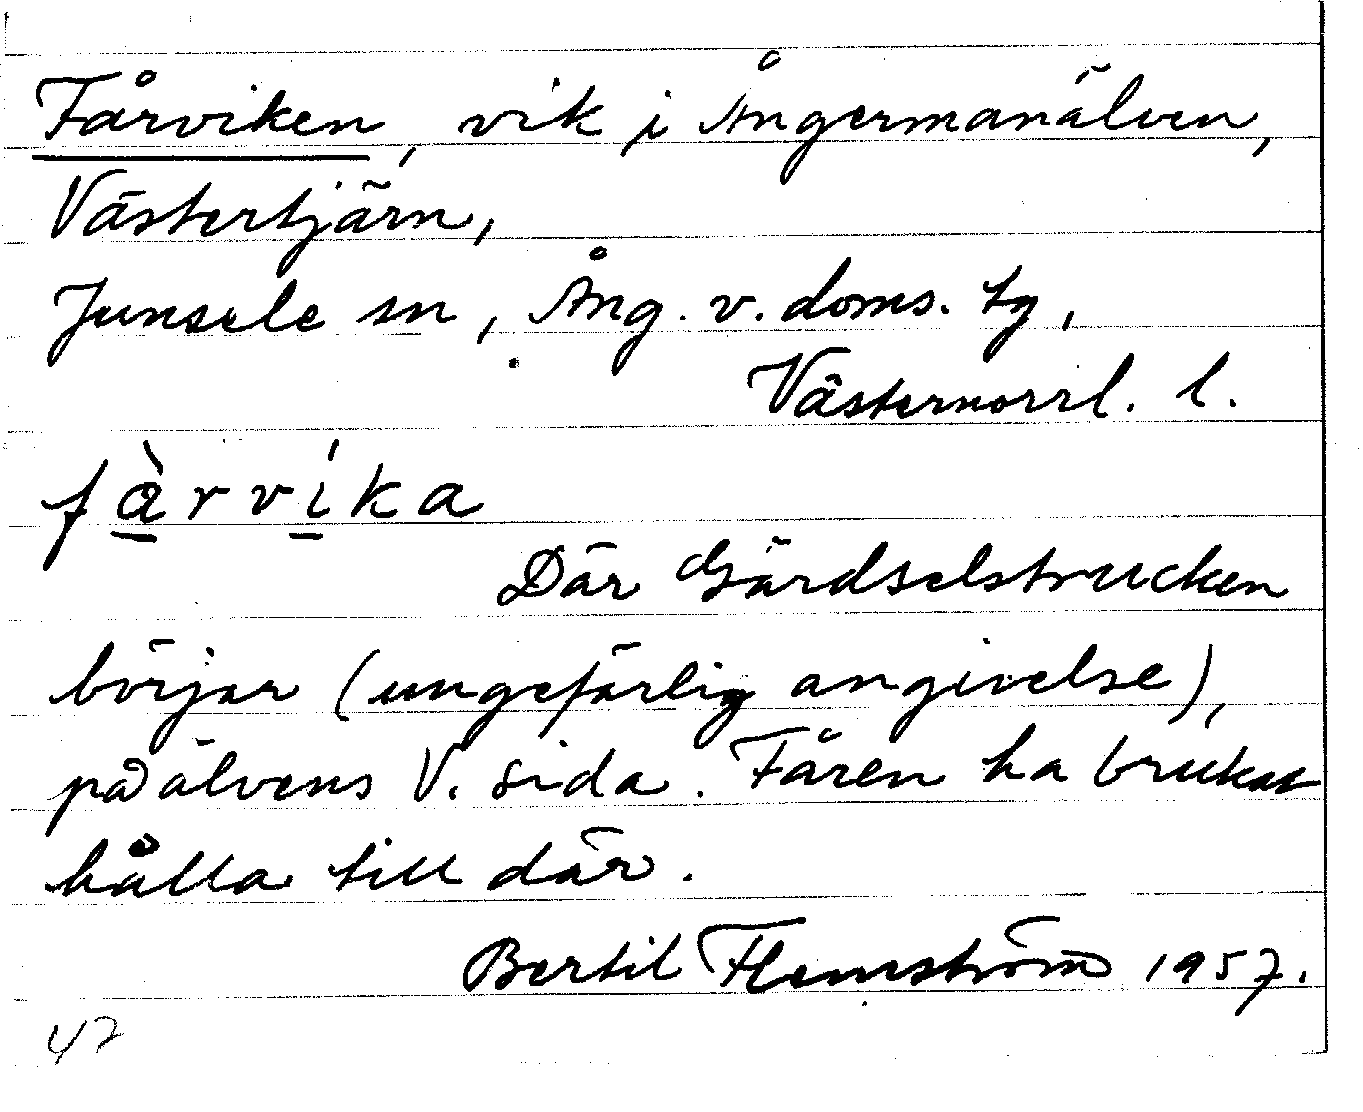 Fårviken, vik i Ångermanälven,
Västertjärn,
Junsele sn, Ång. v. doms. tg,
Västernorrl. l.
fàrvíka
Där Gärdselstrucken
börjar (ungefärlig angivelse),
på älvens V. sida. Fåren ha brukat
hålla till där.
Bertil Flemström 1957.
47